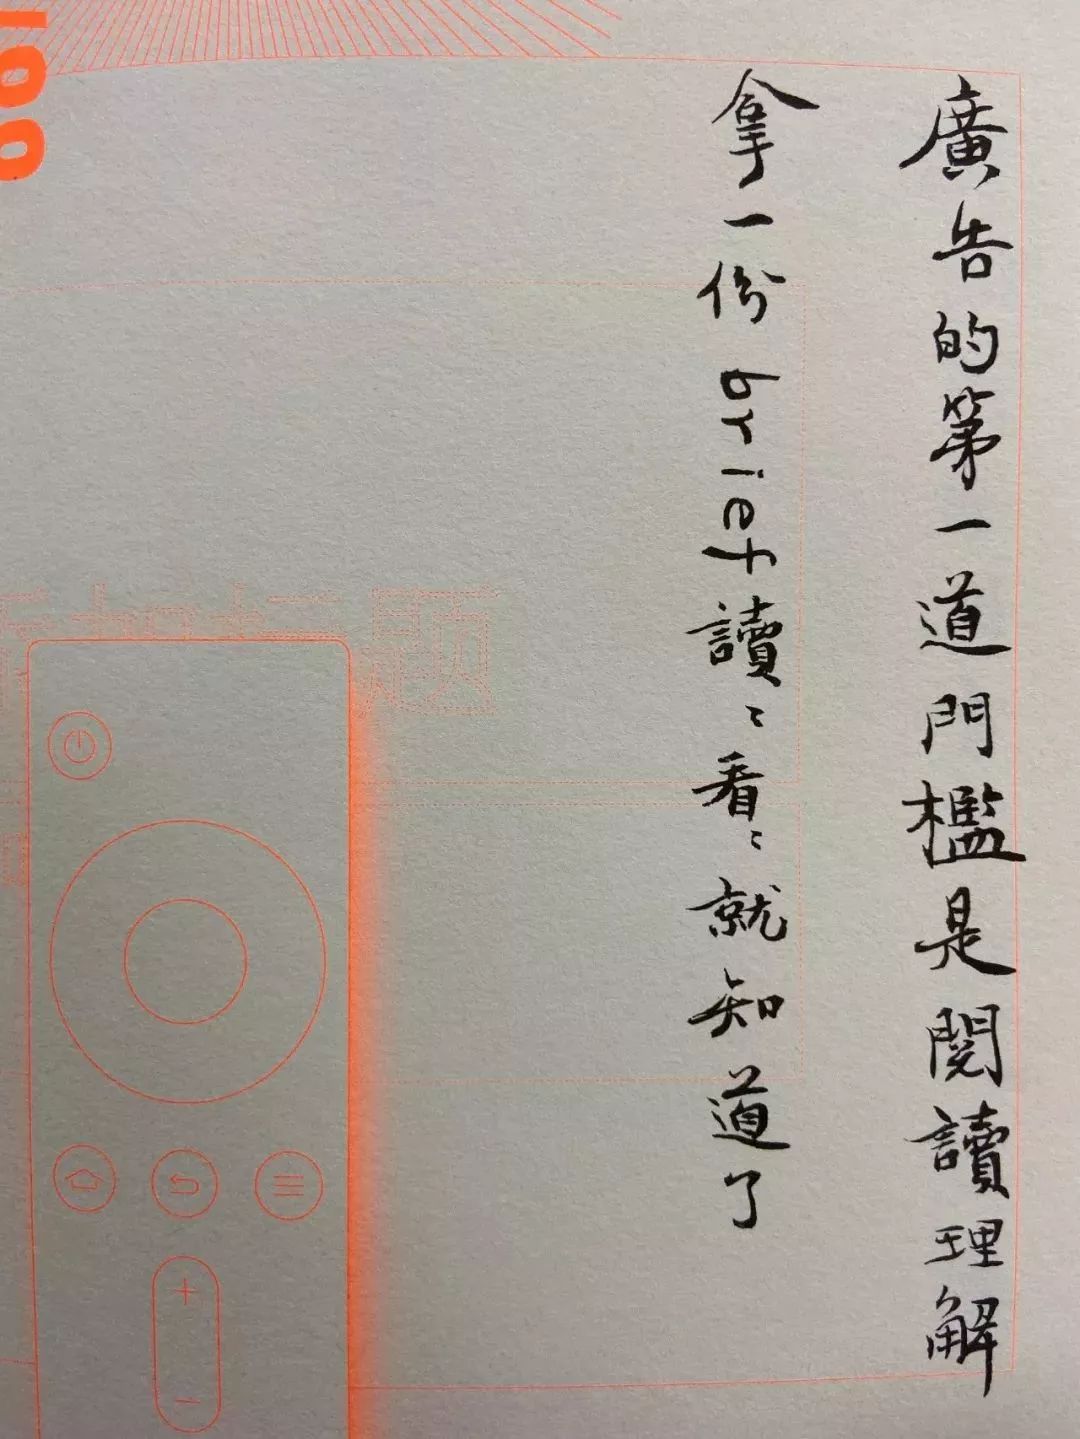 廣告的第一道門檻是閱讀理解
拿一份brief讀〻看〻就知道了
標題
100